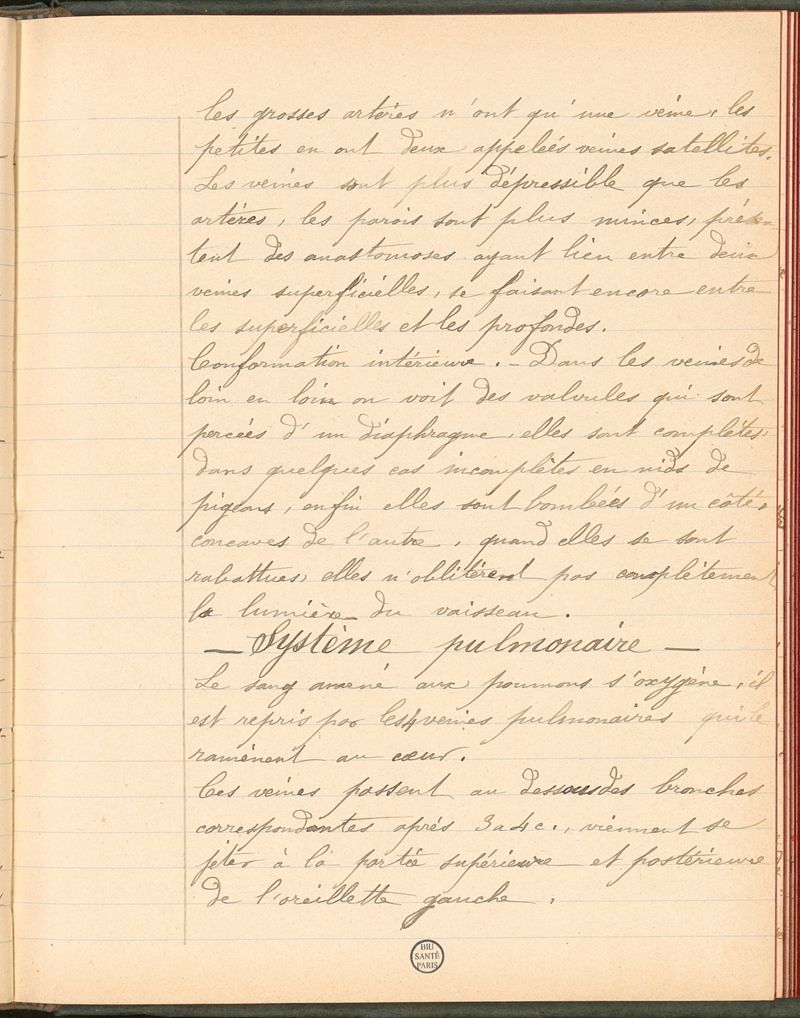 les grosses artères n'ont qu'une veine, les
petites en ont deux appelées veines satellites.
Les veines sont plus dépressible que les
artères, les parois sont plus minces, présen
tent des anastomoses ayant lieu entre deux
veines superficielles, se faisant encore entre
les superficielles et les profondes.
Conformation intérieure. - Dans les veines de
loin en loin on voit des valvules qui sont
percées d'un diaphragme, elles sont complètes,
dans quelques cas incomplètes en nids de
pigeons, enfin elles sont bombées d'un côté,
concaves de l'autre, quand elles se sont
rabattues, elles n'oblitèrent pas complètement
la lumière du vaisseau.
— Système pulmonaire —
Le sang amené aux poumons s'oxygène, il
est repris par les 4 veines pulmonaires qui le
ramènent au cœur.
Ces veines passent au dessous des bronches
correspondantes après 3 a 4 c., viennent se
jeter à la partie supérieure et postérieure
de l'oreillette gauche.
BIU
SANTÉ
PARIS